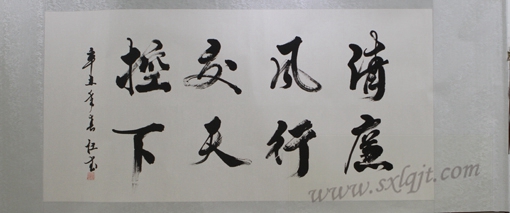 清廉
风行
交天
控下
辛丑年春
www.sxlqjt.com